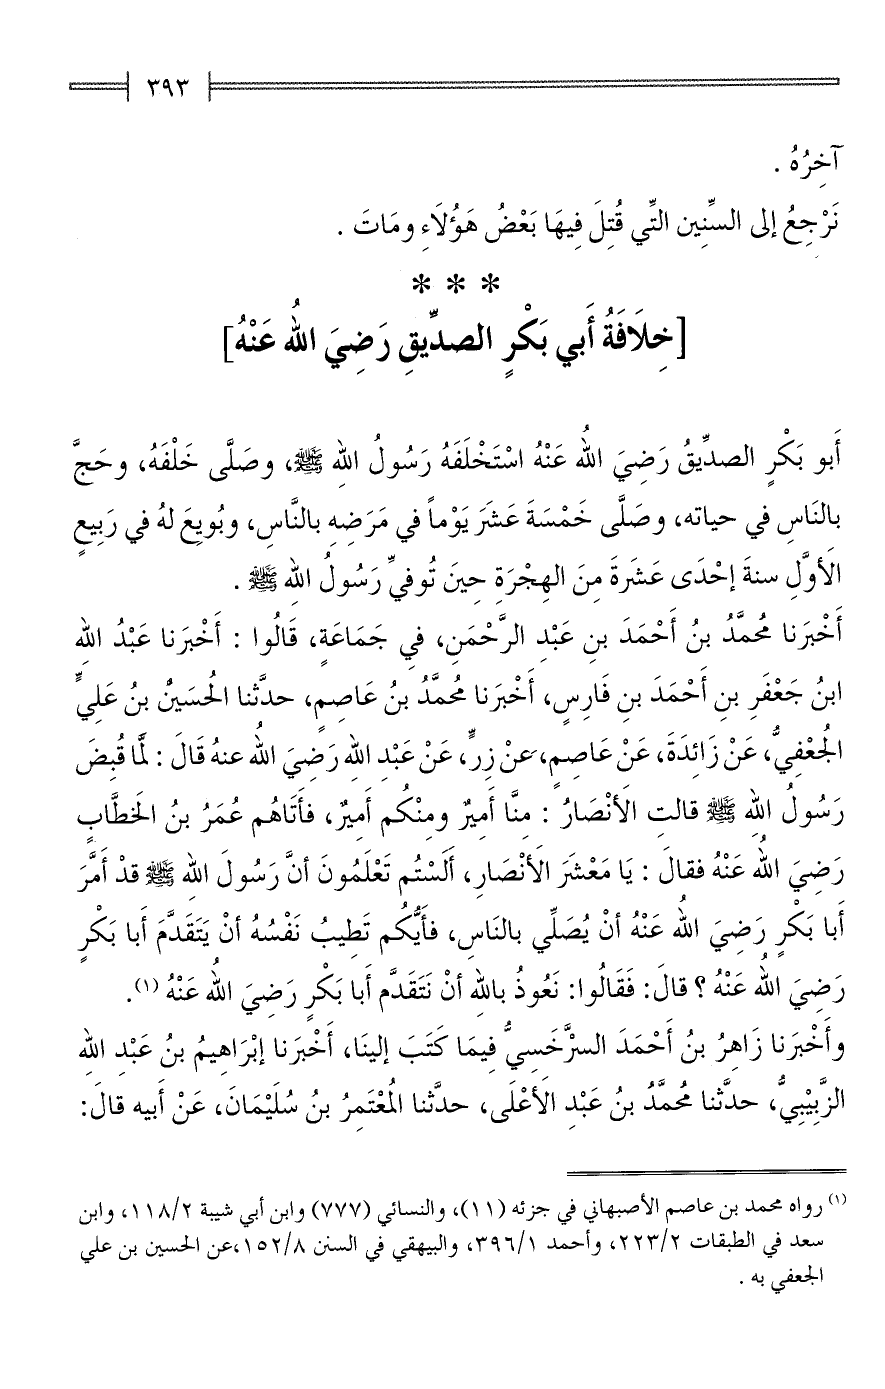 ٣٩٣
آخِرُهُ .
نَرْجِعُ إلى السِّنِين التِّي قُتِلَ فِيهَا بَعْضُ هَؤُلَاءِ ومَاتَ .
* * *
[خِلَافَةُ أَبي بَكْرٍ الصدِّيقِ رَضِيَ اللهُ عَنْهُ]
أَبو بَكْرٍ الصدِّيقُ رَضِيَ اللهُ عَنْهُ اسْتَخْلَفَهُ رَسُولُ اللهِ ﷺ، وصَلَّى خَلْفَهُ، وحَجَّ
بالنَاسِ في حياته، وصَلَّى خَمْسَةَ عَشَرَ يَوْماً في مَرَضِهِ بالنَّاسِ، وبُويِعَ لهُ في رَبِيعٍ
الأوَّلِ سنةَ إحْدَى عَشَرةَ مِنَ الهِجْرَةِ حِينَ تُوفيِّ رَسُولُ اللهِ ﷺ .
أَخْبَرَنا مُحمَّدُ بنُ أَحْمَدَ بنِ عَبْدِ الرَّحْمَنِ، في جَمَاعَةٍ، قَالُوا : أَخْبَرَنا عَبْدُ اللهِ
ابنُ جَعْفَرِ بنِ أَحْمَدَ بنِ فَارِسٍ، أَخْبَرَنا مُحمَّدُ بنُ عَاصِمٍ، حدَّثنا الحُسَينُ بنُ عَليٍّ
الجُعْفِيُّ، عَنْ زَائِدَةَ، عَنْ عَاصِمٍ، عنْ زِرٍّ، عَنْ عَبْدِ اللهِ رَضِيَ اللهُ عنهُ قَالَ : لمَّا قُبِضَ
رَسُولُ اللهِ ﷺ قالتِ الأَنْصَارُ : مِنَّا أَمِيرٌ ومِنْكُم أَمِيرٌ، فأَتَاهُم عُمَرُ بنُ الخَطَّابِ
رَضِيَ اللهُ عَنْهُ فقالَ : يَا مَعْشَرَ الأَنْصَارِ، أَلَسْتُم تَعْلَمُونَ أنَّ رَسُولَ اللهِ ﷺ قدْ أَمَّرَ
أبا بَكْرٍ رَضِيَ اللهُ عَنْهُ أنْ يُصَلِّي بالنَاسِ، فأَيُّكُم تَطِيبُ نَفْسُهُ أنْ يَتَقَدَّمَ أبا بَكْرٍ
رَضِيَ اللهُ عَنْهُ ؟ قالَ: فَقَالُوا: نَعُوذُ باللهِ أنْ نَتَقَدَّم أَبا بَكْرٍ رَضِيَ اللهُ عَنْهُ (١).
وأَخْبَرَنا زَاهِرُ بنُ أَحْمَدَ السرَّخَسِيُّ فِيمَا كَتَبَ إلينَا، أَخْبَرَنا إبْرَاهِيمُ بنُ عَبْدِ اللهِ
الزَّبِيْبِيُّ، حدَّثنا مُحمَّدُ بنُ عَبْدِ الأَعْلَى، حدَّثنا المُعْتَمِرُ بنُ سُلَيْمَانَ، عَنْ أَبيه قالَ:
(١) رواه محمد بن عاصم الأصبهاني في جزئه (١١)، والنسائي (٧٧٧) وابن أبي شيبة ١١٨/٢، وابن
سعد في الطبقات ٢٢٣/٢، وأحمد ٣٩٦/١، والبيهقي في السنن ١٥٢/٨ ،عن الحسين بن علي
الجعفي به .